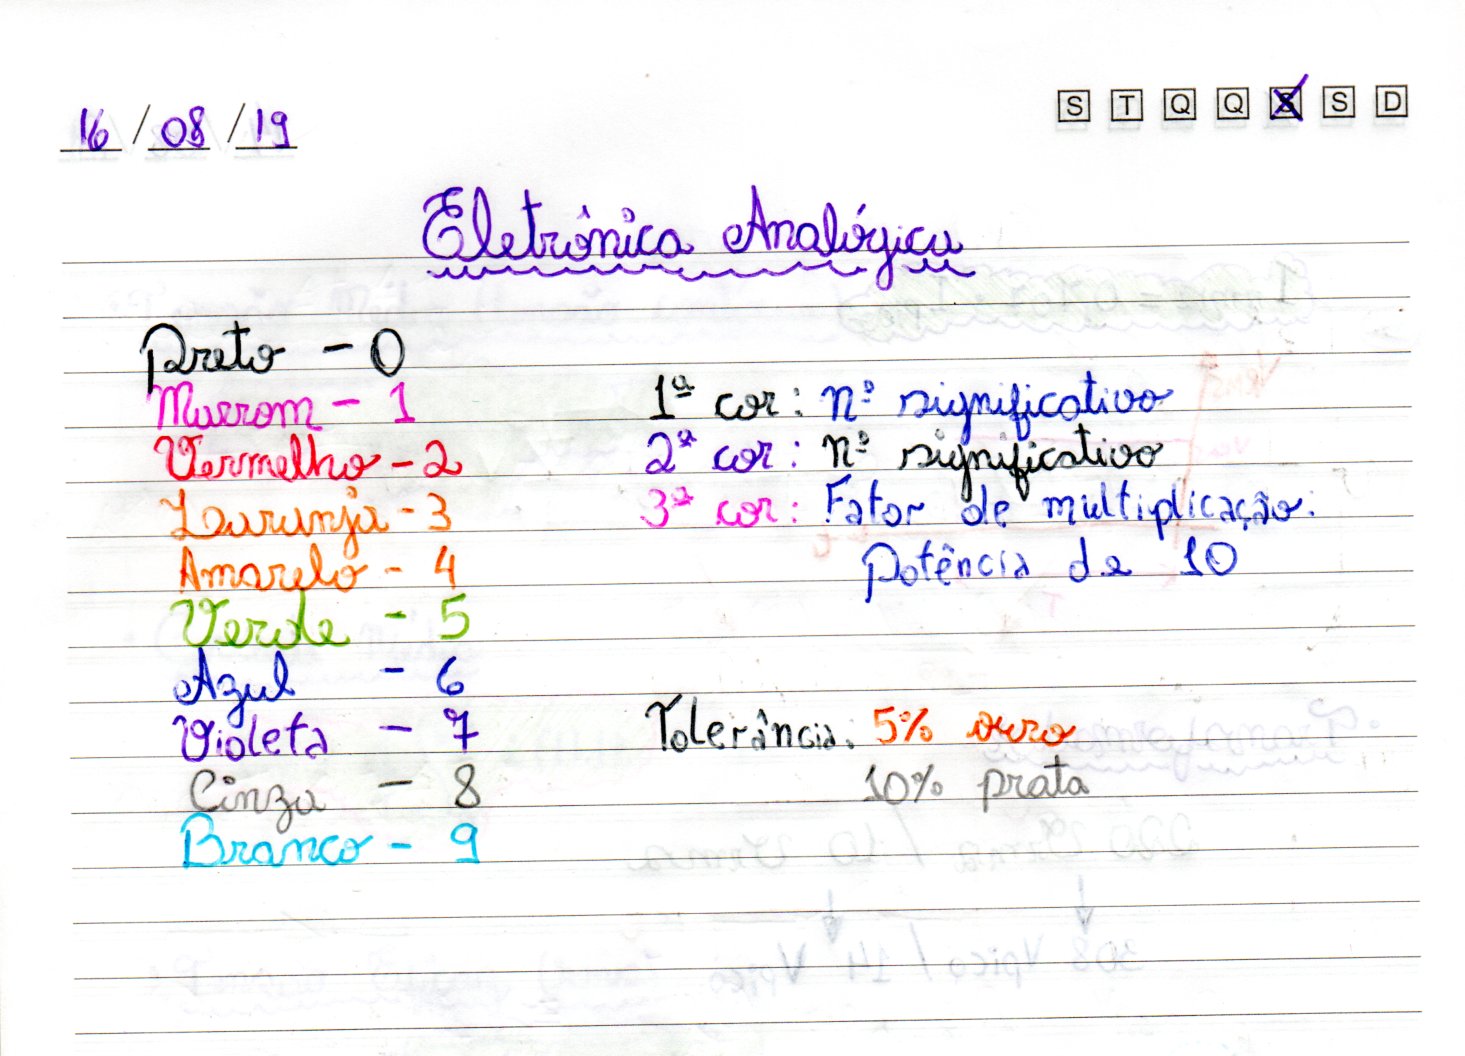 16 / 08 / 19
S T Q Q S S D
Eletrônica Analógica
Preto - 0
Marrom - 1
Vermelho - 2
Laranja - 3
Amarelo - 4
Verde - 5
Azul - 6
Violeta - 7
Cinza - 8
Branco - 9
1ª cor: nº significativo
2ª cor: nº significativo
3ª cor: Fator de multiplicação.
Potência de 10
Tolerância: 5% ouro
10% prata